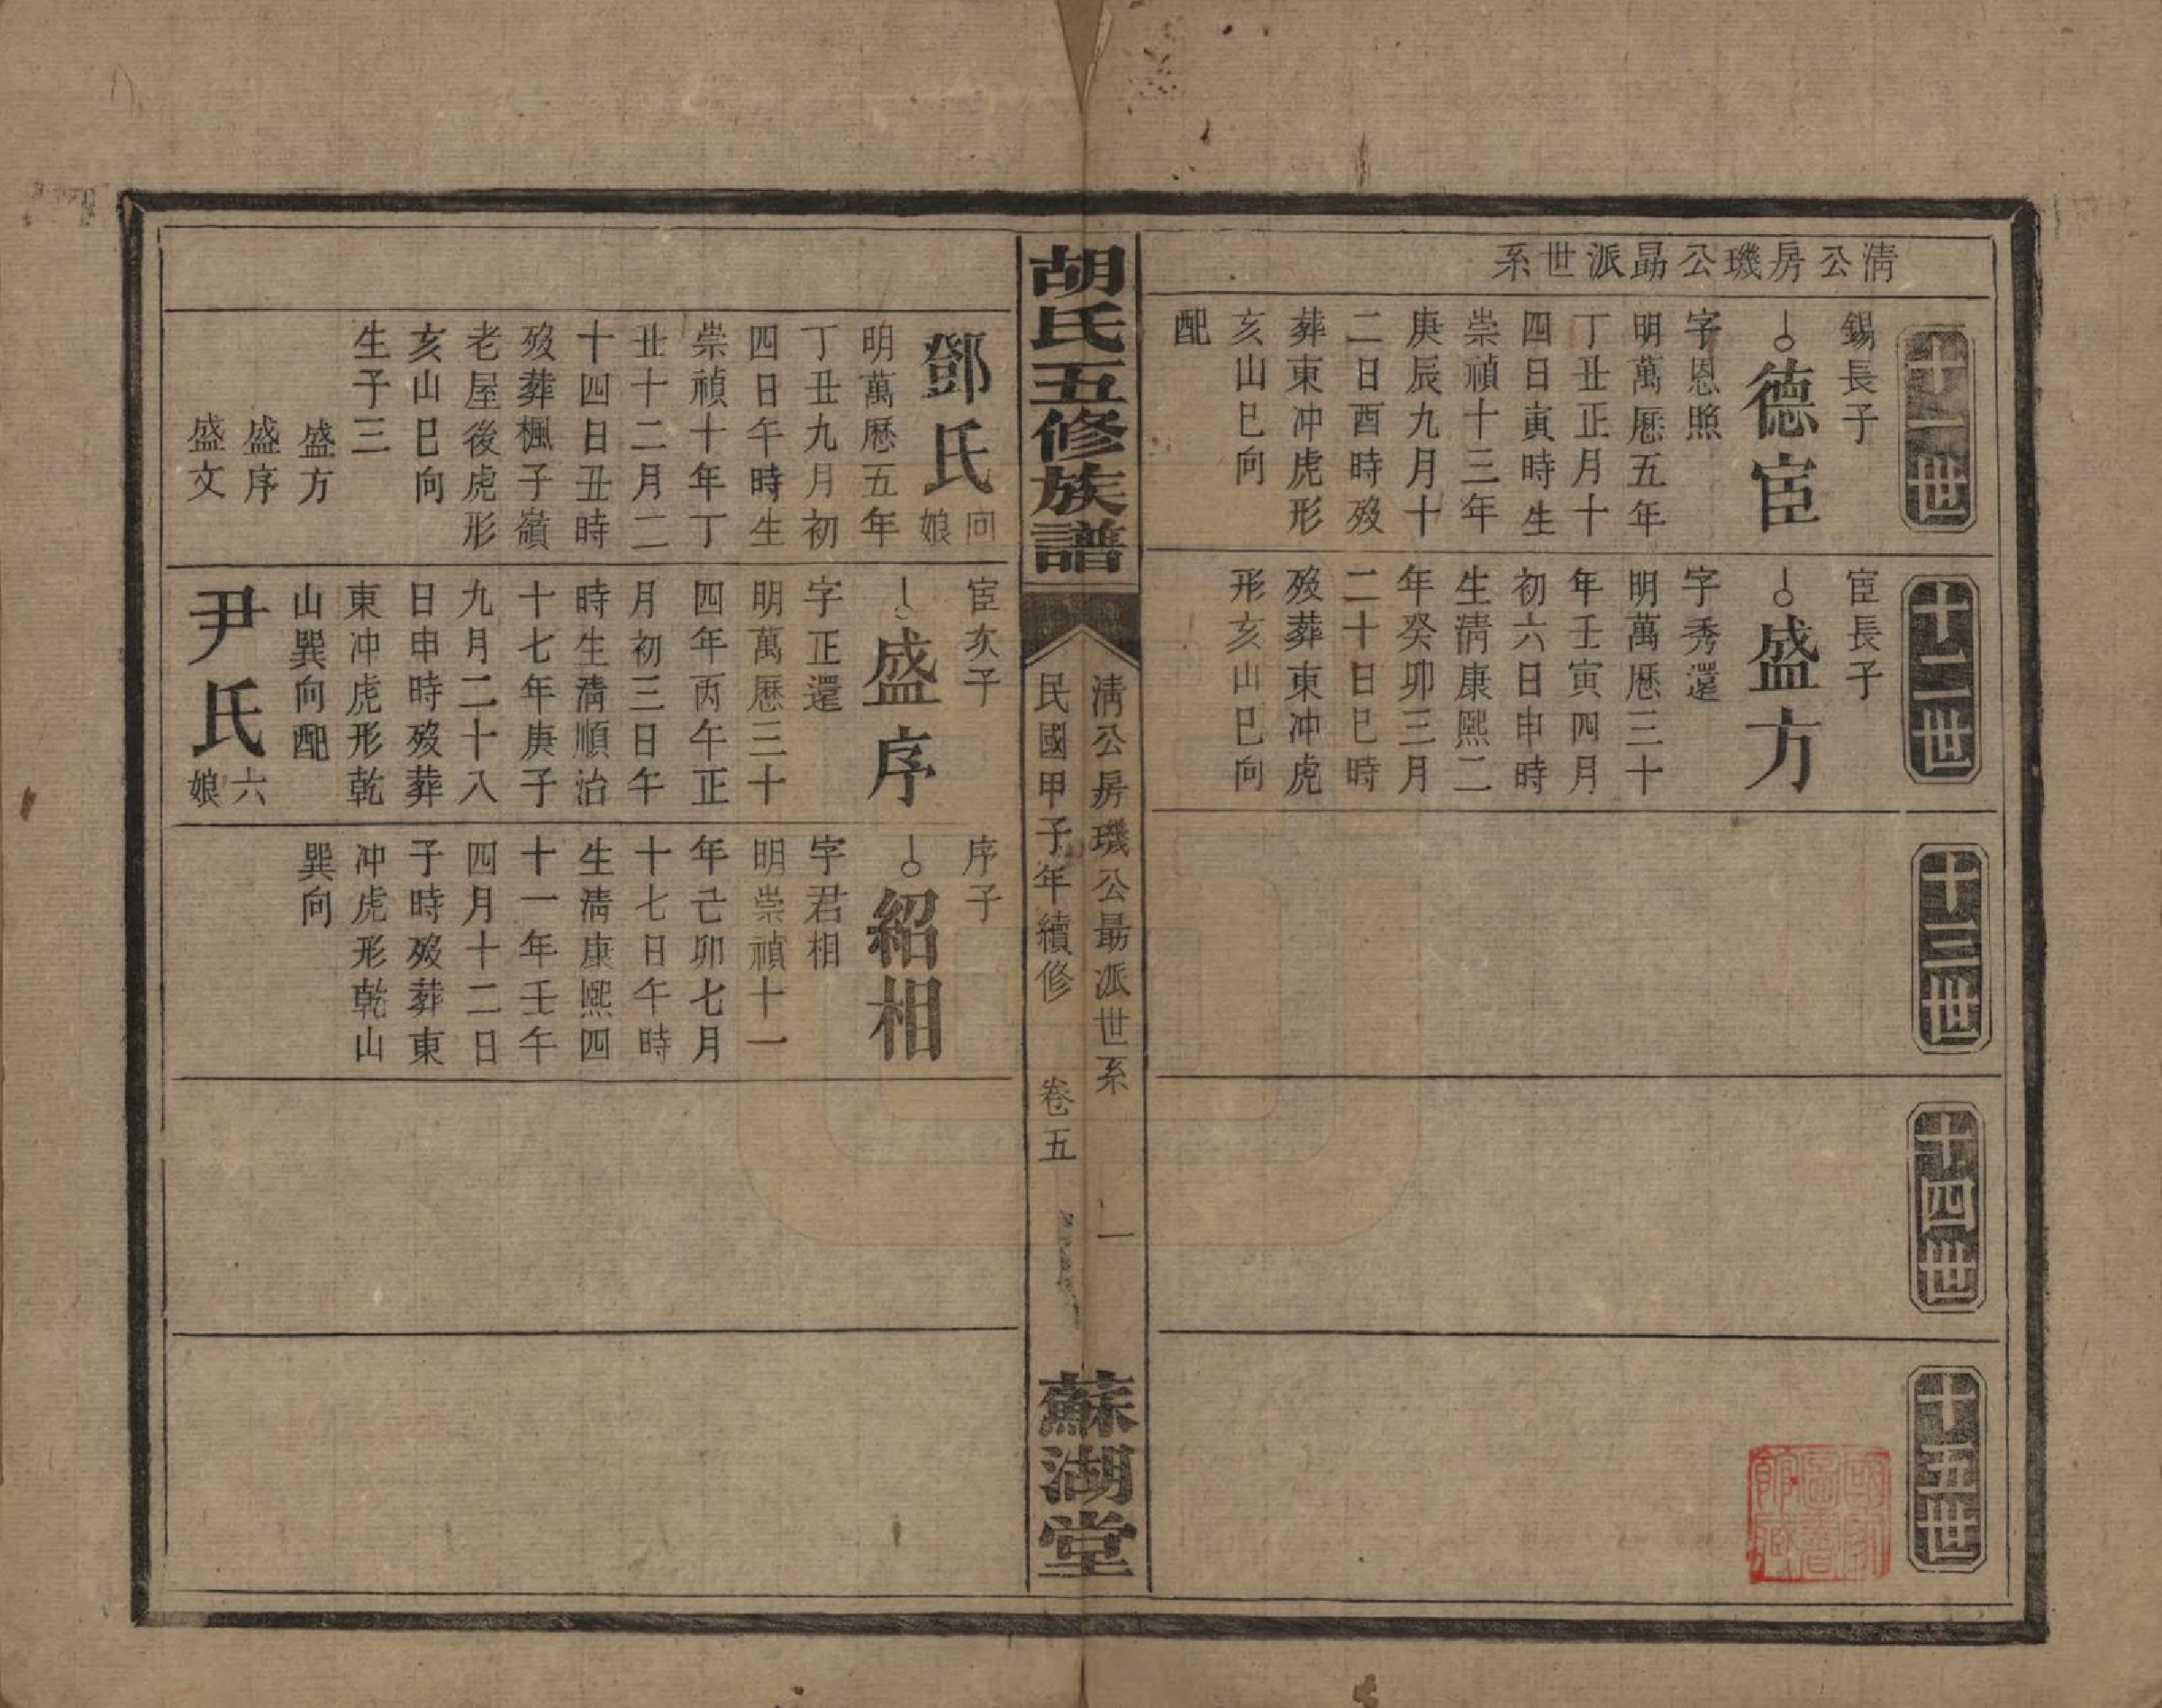 清公房璣公勗派世系
十一世
錫長子
德宦
字恩照
明萬厯五年
丁丑正月十
四日寅時生
崇禎十三年
庚辰九月十
二日酉時歿
葬東冲虎形
亥山巳向
配
十二世
宦長子
盛方
字秀還
明萬厯三十
年壬寅四月
初六日申時
生清康熙二
年癸卯三月
二十日巳時
歿葬東冲虎
形亥山巳向
十三世
十四世
十五世
胡氏五修族譜
清公房璣公勗派世系 一
民國甲子年續修 卷五
蘇湖堂
鄧氏回娘
明萬厯五年
丁丑九月初
四日午時生
崇禎十年丁
丑十二月二
十四日丑時
歿葬楓子嶺
老屋後虎形
亥山巳向
生子三
盛方
盛序
盛文
宦次子
盛序
字正還
明萬厯三十
四年丙午正
月初三日午
時生清順治
十七年庚子
九月二十八
日申時歿葬
東冲虎形乾
山巽向配
尹氏六娘
序子
紹相
字君相
明崇禎十一
年己卯七月
十七日午時
生清康熙四
十一年壬午
四月十二日
子時歿葬東
冲虎形乾山
巽向